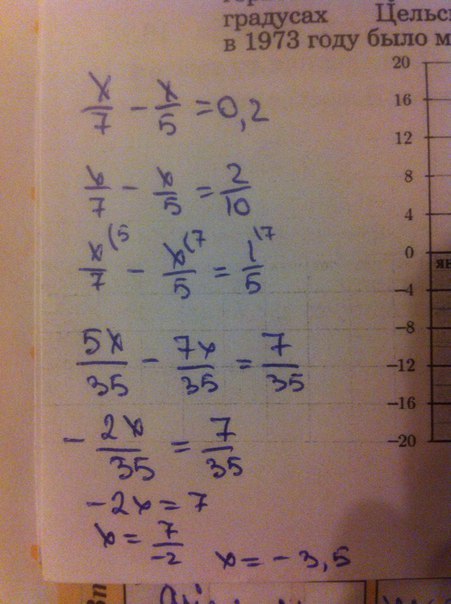 градусах Цельс
в 1973 году было м
20
16
12
8
4
0
-4
-8
-12
-16
-20
x/7 - x/5 = 0,2
x/7 - x/5 = 2/10
x(5/7 - x(7/5 = 1\7/5
5x/35 - 7x/35 = 7/35
- 2x/35 = 7/35
-2x = 7
x = 7/-2 x = -3,5